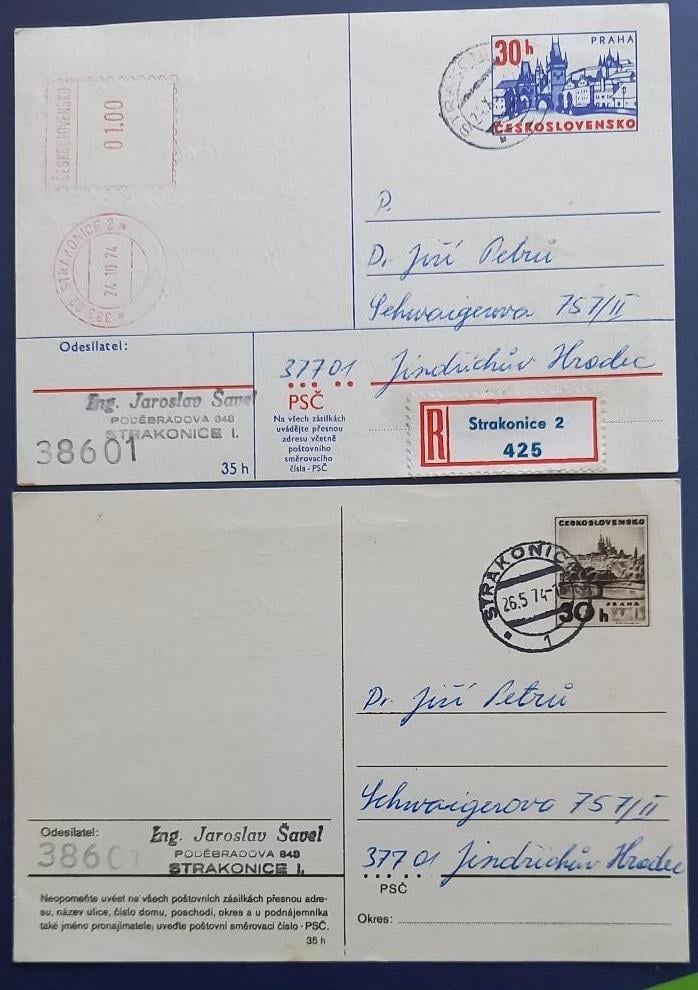 ČESKOSLOVENSKO
01.00
STRAKONICE 2
24.10.74
PRAHA
30h
ČESKOSLOVENSKO
P.
Dr. Jiří Petrů
Schwaigerova 757/II
37701 Jindřichův Hradec
Odesílatel:
Ing. Jaroslav Šavel
PODĚBRADOVA 848
STRAKONICE I.
38601
35 h
PSČ
Na všech zásilkách
uvádějte přesnou
adresu včetně
poštovního
směrovacího
čísla - PSČ
R
Strakonice 2
425
ČESKOSLOVENSKO
PRAHA
30h
STRAKONICE
26.5.74
1
Dr. Jiří Petrů
Schwaigerova 757/II
37701 Jindřichův Hradec
PSČ
Okres:
Odesílatel:
Ing. Jaroslav Šavel
PODĚBRADOVA 848
STRAKONICE I.
38601
Neopomeňte uvést na všech poštovních zásilkách přesnou adre-
su, název ulice, číslo domu, poschodí, okres a u podnájemníka
také jméno pronajímatele; uveďte poštovní směrovací číslo - PSČ.
35 h